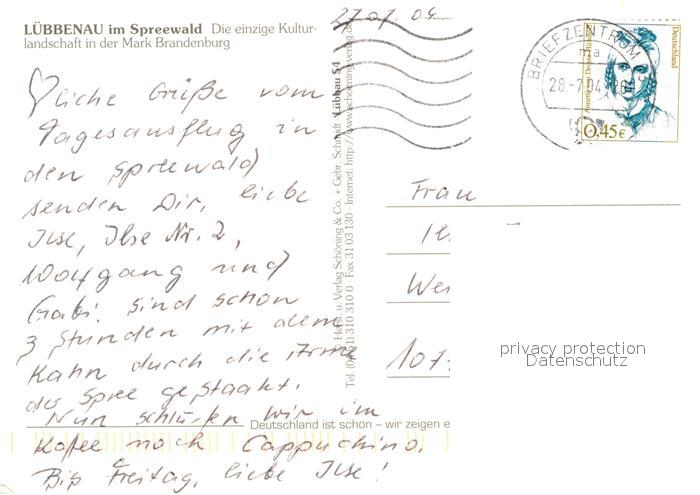 LÜBBENAU im Spreewald Die einzige Kultur-
landschaft in der Mark Brandenburg
27.07.04
♡liche Grüße vom
Tagesausflug in
den Spreewald
senden Dir, liebe
Ilse, Ilse Nr. 2,
Wolfgang und
Gabi. Sind schon
3 Stunden mit dem
Kahn durch die Arme
der Spree gestaakt.
Nun schlürfen wir im
Kaffee noch Cappuchino.
Bis Freitag, liebe Ilse!
Deutschland ist schön – wir zeigen e
Herst. u. Verlag Schöning & Co. + Gebr. Schmidt Lübnau 54
Tel. (0451) 310 310 0 · Fax 31 03 130 · Internet: http://www.schoening-verlag.de
BRIEFZENTRUM
ma
28.-7.04
Deutschland
0,45€
Frau
Il.
Wei
107
privacy protection
Datenschutz